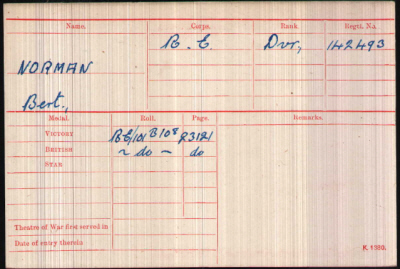 Name. Corps. Rank. Regtl. No.
R. E. Dvr, 142493
NORMAN
Bert.,
Medal. Roll. Page. Remarks.
VICTORY RE/101 B108 23121
BRITISH ~ do ~ do
STAR
Theatre of War first served in
Date of entry therein
K. 1380.